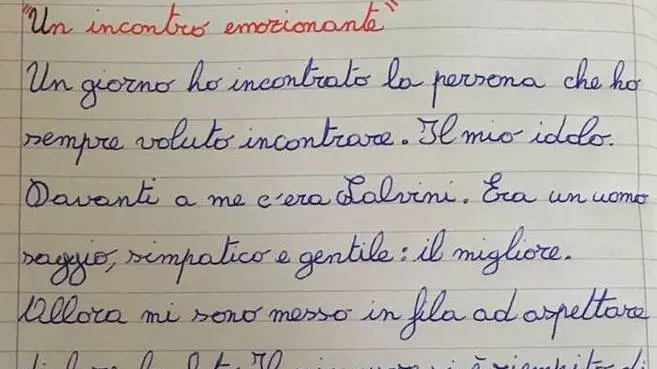 "Un incontro emozionante"
Un giorno ho incontrato la persona che ho
sempre voluto incontrare. Il mio idolo.
Davanti a me c'era Salvini. Era un uomo
saggio, simpatico e gentile: il migliore.
Allora mi sono messo in fila ad aspettare